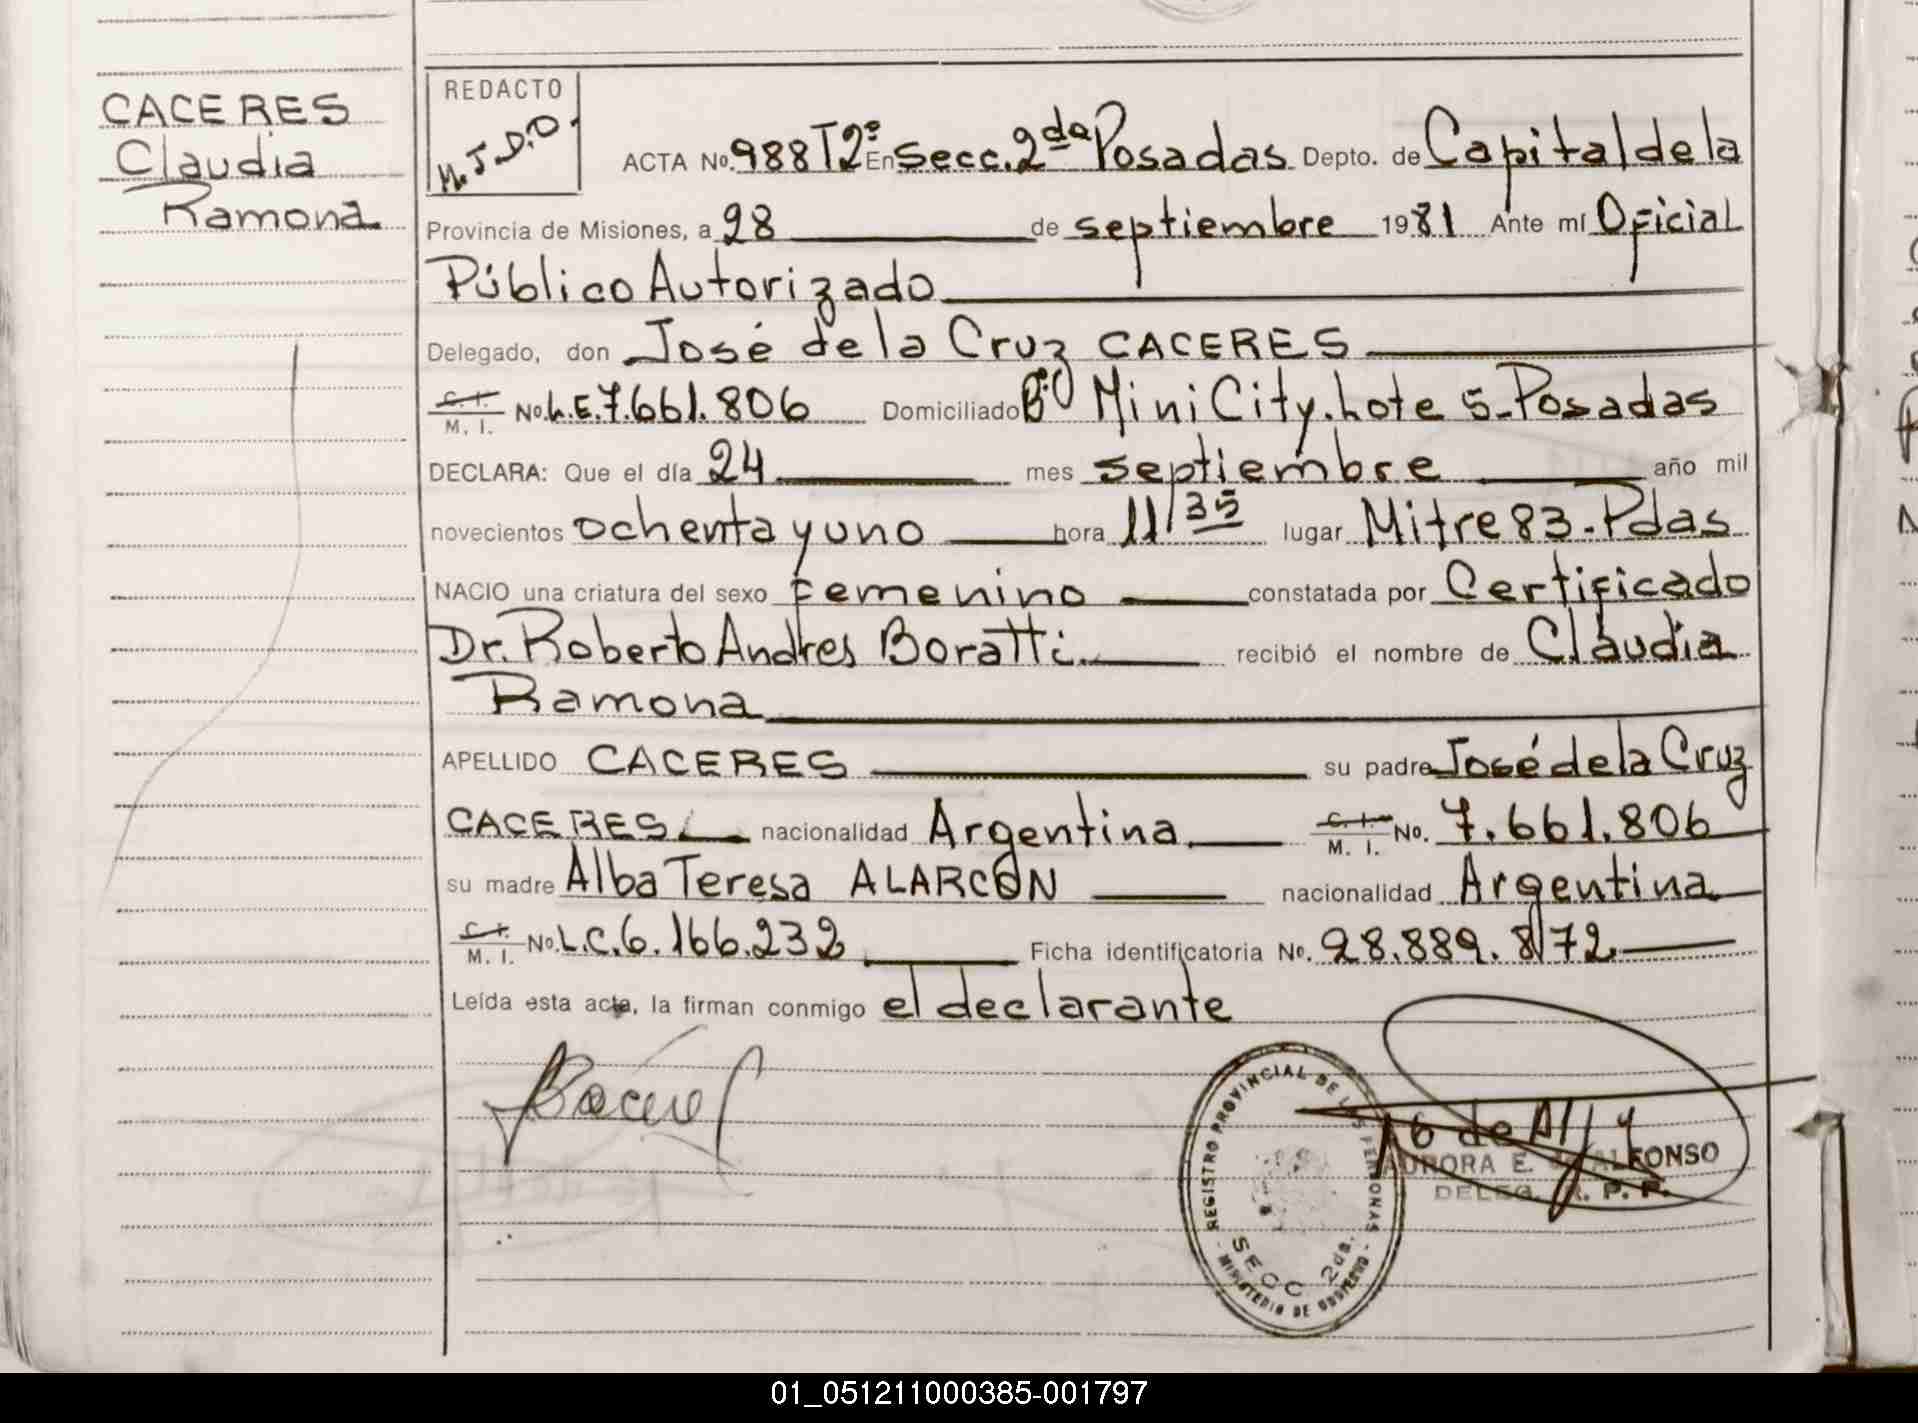 CACERES
Claudia
Ramona
REDACTO
M.J.D.O.
ACTA No. 988 T2º En Secc. 2da Posadas Depto. de Capital de la
Provincia de Misiones, a 28 de septiembre 1981 Ante mí Oficial
Público Autorizado
Delegado, don José de la Cruz CACERES
C. I. M. I. No. L.E. 7.661.806 Domiciliado Bº Mini City. Lote 5-Posadas
DECLARA: Que el día 24 mes septiembre año mil
novecientos ochenta y uno hora 11/35 lugar Mitre 83-Pdas
NACIO una criatura del sexo femenino constatada por Certificado
Dr. Roberto Andres Boratti recibió el nombre de Claudia
Ramona
APELLIDO CACERES su padre José de la Cruz
CACERES nacionalidad Argentina C. I. M. I. No. 7.661.806
su madre Alba Teresa ALARCON nacionalidad Argentina
C. I. M. I. No. L.C. 6.166.232 Ficha identificatoria No. 28.889.872
Leída esta acta, la firman conmigo el declarante
REGISTRO PROVINCIAL DE LAS PERSONAS
SECC 2da.
- MINISTERIO DE GOBIERNO -
AURORA E. ALFONSO
DELEG. R. P. P.
01_051211000385-001797